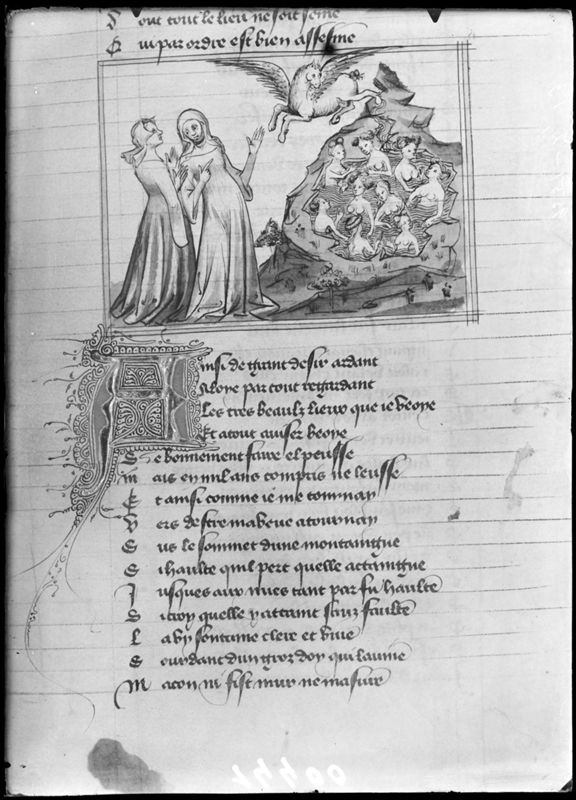 S ont tout le lieu ne soit seme
Q ui par ordre est bien assesme
Ainsi de grant desir ardant
Aloye par tout regardant
Les tres beaulz lieux que ie veoye
Et a tout auiser beoye
S e bonnement faire el peusse
M ais en mil ans compris ne leusse
E t ainsi comme ie me tournay
V ers destre ma veue atournay
S us le sommet dune montaingne
S i haulte quil pert quelle attaingne
J usques aux nues tant par fu haulte
S i croy quelle y attaint sanz faulte
L a vy fontaine clere et viue
S ourdant dun groz doy qui lauiue
M acon ni fist mur ne masiere
00441